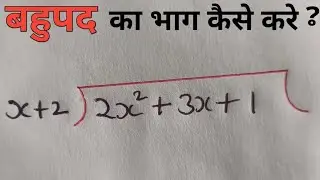 बहुपद का भाग कैसे करे ?
x+2 ) 2x² + 3x + 1 (